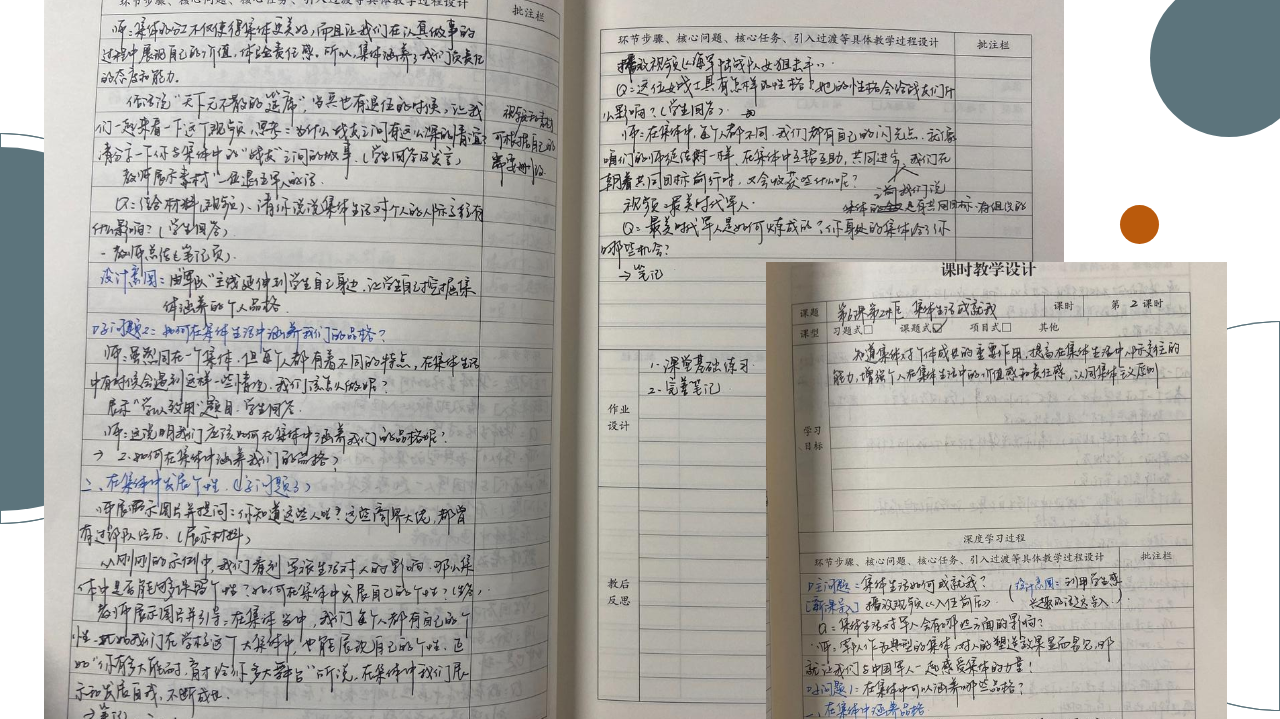 环节步骤、核心问题、核心任务、引入过渡等具体教学过程设计
批注栏
师:集体的分工不仅使得集体更美好,而且让我们在认真做事的
过程中展现自己的价值,体验责任感。所以,集体涵养了我们负责任
的态度和能力。
俗话说“天下无不散的筵席”,当兵也有退伍的时候,让我
们一起来看一下这个视频,思考:为什么战友之间有这么深的情谊?
请分享一下你与集体中的“战友”之间的故事。(学生回答及发言)
教师展示素材“
Q:结合材料(视频),请你说说集体生活对个人的人际交往有
什么影响?(学生回答)
-教师总结(笔记页)
设计意图:由军队“主线延伸到学生自己身边,让学生自己挖掘集
体涵养的个人品格
子问题2:如何在集体生活中涵养我们的品格?
师:虽然同在一个集体,但每个人都有着不同的特点,在集体生活
中有时候会遇到这样一些情况,我们该怎么做呢?
展示“学以致用”题目,学生回答.
师:这说明我们应该如何在集体中涵养我们的品格呢?
→ 2.如何在集体中涵养我们的品格)
二、在集体中发展个性.(子问题3)
师展示图片并提问:你知道这些人吗?这些商界大佬,都曾
有过部队经历.(展示材料)
从刚刚的示例中,我们看到军旅生活对人的影响.那么集
体中是否能
如何在集体中发展自己的个性?
教师展示图片并引导:在集体当中,我们每个人都有自己的个
性.比如我们在学校这个大集体中,也能展现自己的个性.正
如“你有多大能耐,育才给你多大舞台”所说,在集体中我们展
示和发展自我,不断成长.
→笔记
可根据自己的
需要删改
环节步骤、核心问题、核心任务、引入过渡等具体教学过程设计
批注栏
播放视频《海军陆战队女狙击手》.
Q:这位女战士具有怎样的性格?她的性格会给战友们什
么影响?(学生回答)
师:在集体中,每个人都不同,我们都有自己的闪光点.
在集体中互帮互助,共同进步,我们在
朝着共同目标前行时,又会收获些什么呢?
视频:最美时代军人.
Q:最美时代军人是如何炼成的?你身处的集体给了你
哪些机会?
→笔记
作业
设计
1.课堂基础练习.
2.完善笔记
教后
反思
课时教学设计
课题
第6课第2框 集体生活成就我
课时
第 2 课时
课型
习题式□ 课题式☑ 项目式□ 其他
学习
目标
知道集体对个体成长的重要作用,提高在集体生活中人际交往的
能力,增强个人在集体生活中的价值感和责任感,认同集体主义原则
深度学习过程
环节步骤、核心问题、核心任务、引入过渡等具体教学过程设计
批注栏
主问题:集体生活如何成就我?
(设计意图:利用学生感
兴趣的话题导入)
[新课导入] 播放视频《入伍前后》.
Q:集体生活对军人会有哪些方面的影响?
师:军队作为典型的集体,对人的塑造效果显而易见,那
就让我们与中国军人一起感受集体的力量!
子问题1:在集体中可以涵养哪些品格?
一、在集体中涵养品格